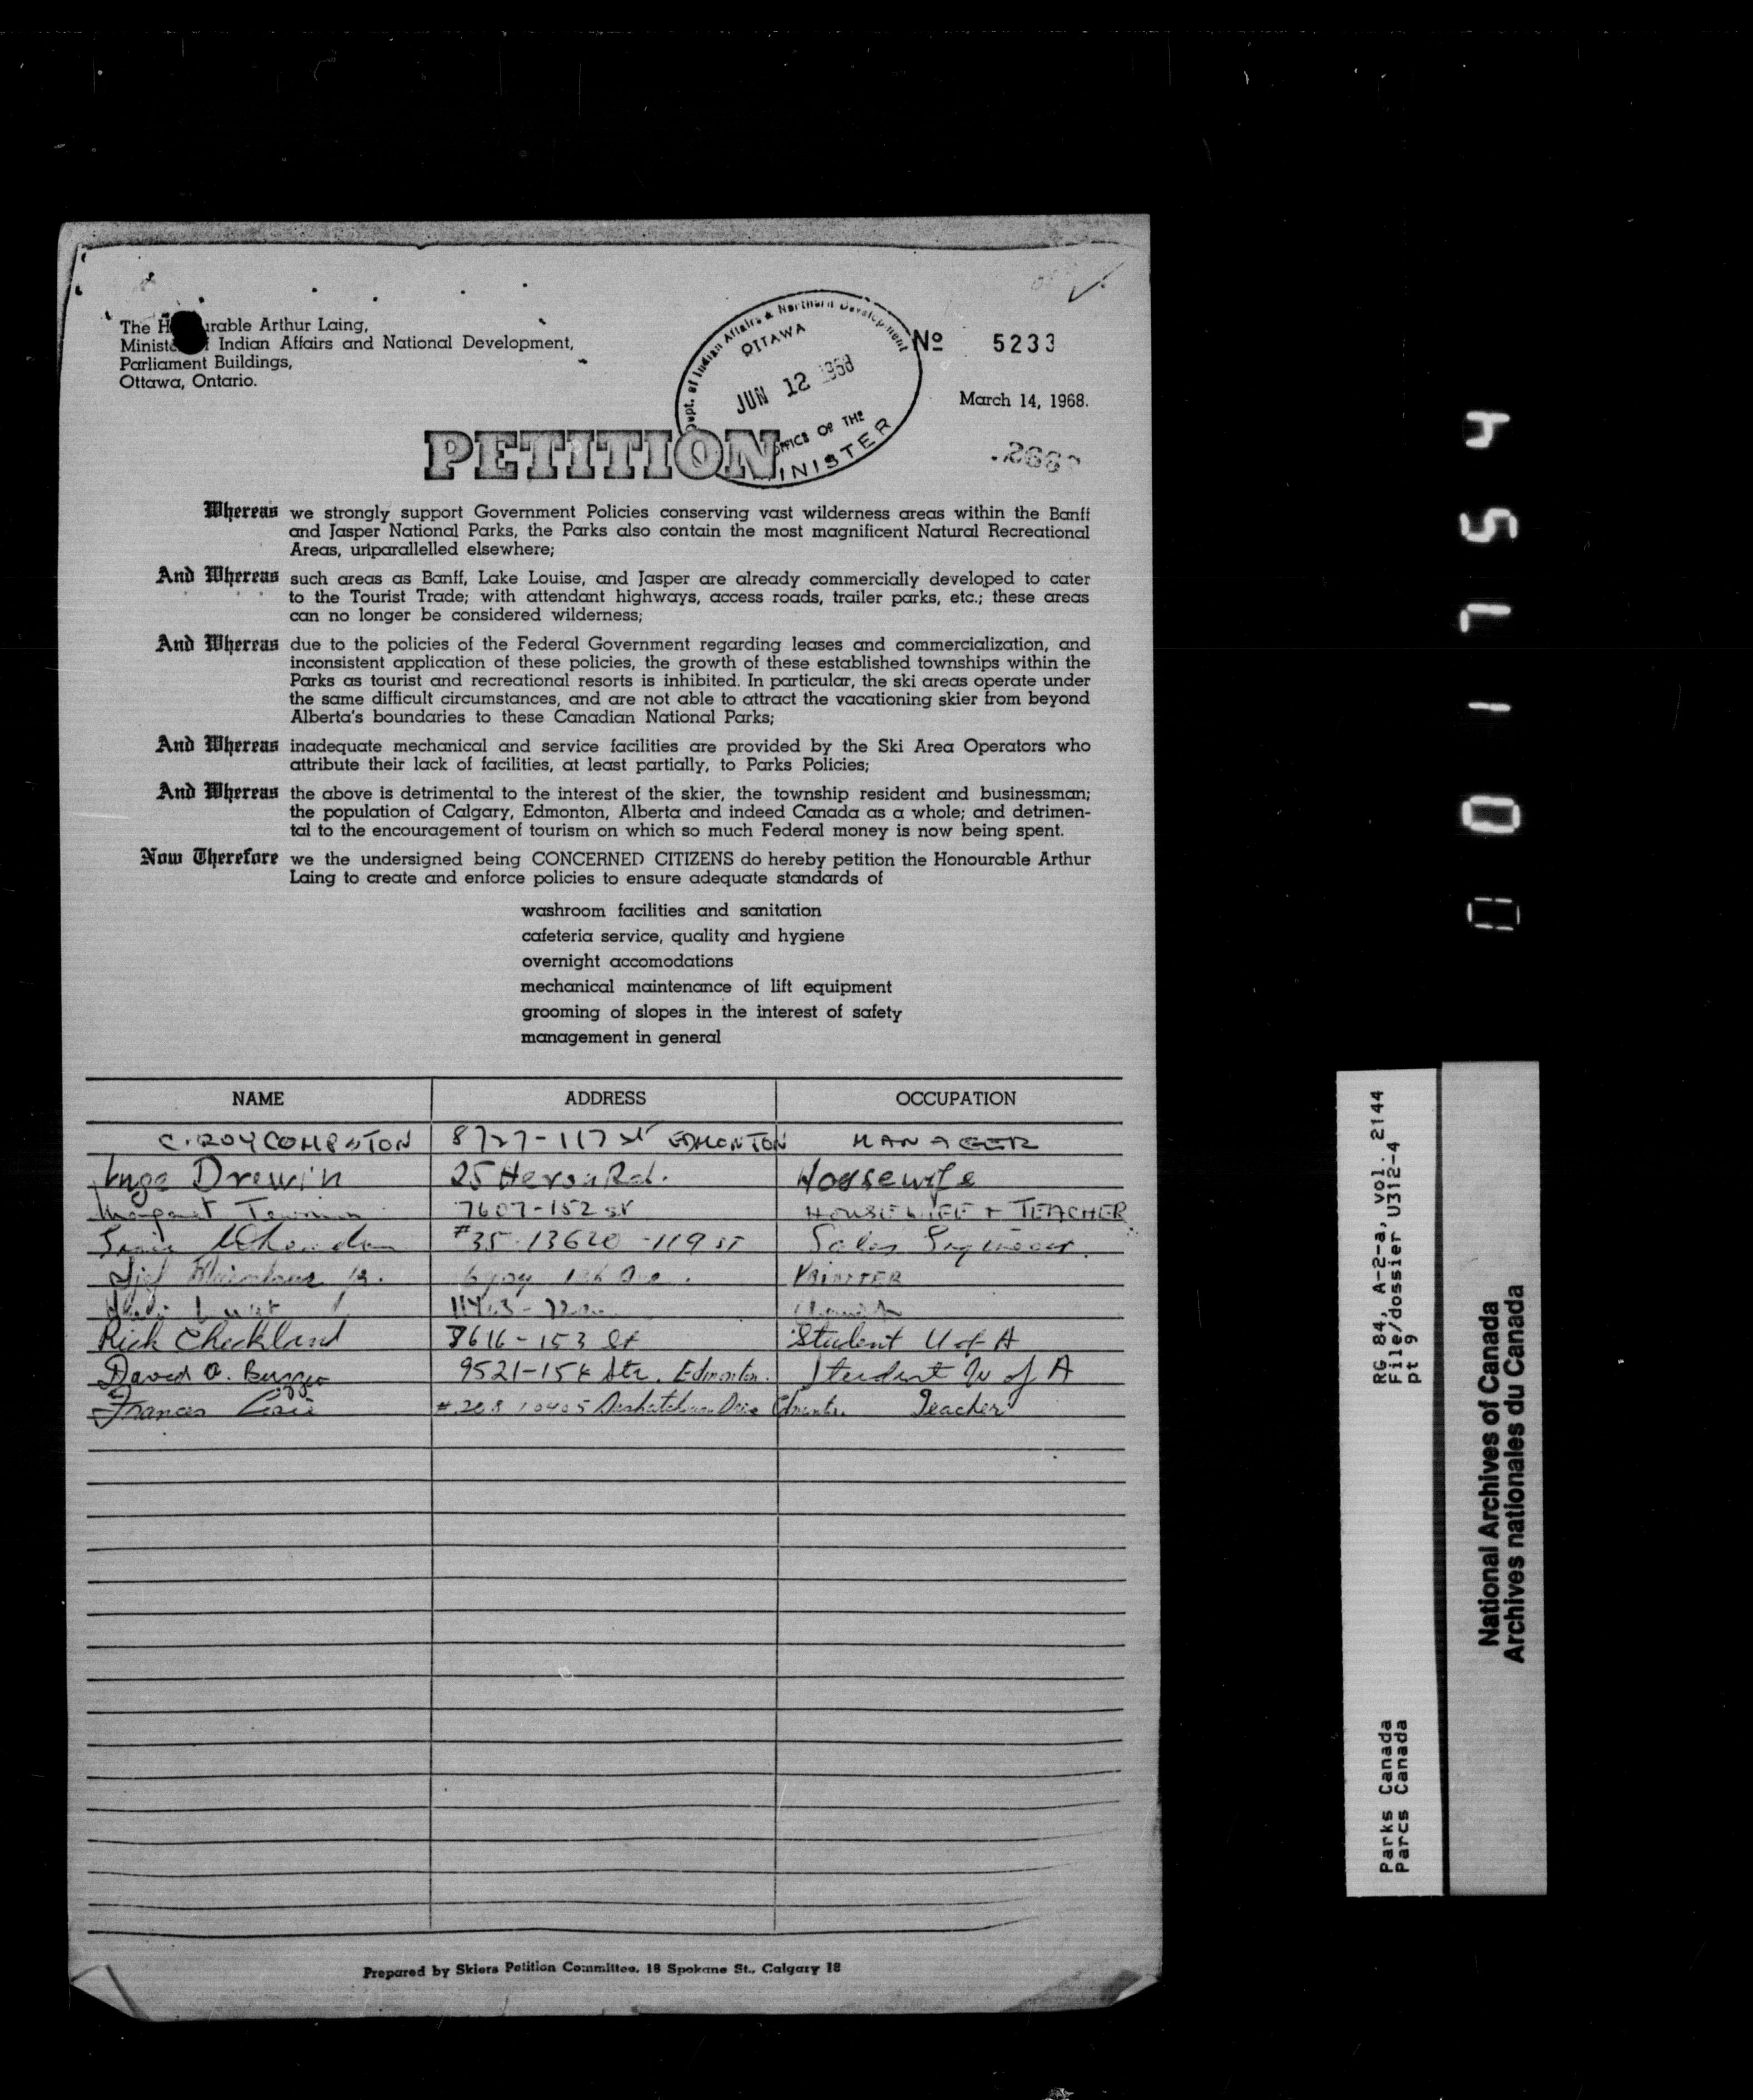 The H urable Arthur Laing,
Ministe f Indian Affairs and National Development,
Parliament Buildings,
Ottawa, Ontario.
Dept. of Indian Affairs & Northern Development
OTTAWA
JUN 12 1968
OFFICE OF THE
MINISTER
No 5233
March 14, 1968.
PETITION
Whereas we strongly support Government Policies conserving vast wilderness areas within the Banff
and Jasper National Parks, the Parks also contain the most magnificent Natural Recreational
Areas, unparallelled elsewhere;
And Whereas such areas as Banff, Lake Louise, and Jasper are already commercially developed to cater
to the Tourist Trade; with attendant highways, access roads, trailer parks, etc.; these areas
can no longer be considered wilderness;
And Whereas due to the policies of the Federal Government regarding leases and commercialization, and
inconsistent application of these policies, the growth of these established townships within the
Parks as tourist and recreational resorts is inhibited. In particular, the ski areas operate under
the same difficult circumstances, and are not able to attract the vacationing skier from beyond
Alberta's boundaries to these Canadian National Parks;
And Whereas inadequate mechanical and service facilities are provided by the Ski Area Operators who
attribute their lack of facilities, at least partially, to Parks Policies;
And Whereas the above is detrimental to the interest of the skier, the township resident and businessman;
the population of Calgary, Edmonton, Alberta and indeed Canada as a whole; and detrimen-
tal to the encouragement of tourism on which so much Federal money is now being spent.
Now Therefore we the undersigned being CONCERNED CITIZENS do hereby petition the Honourable Arthur
Laing to create and enforce policies to ensure adequate standards of
washroom facilities and sanitation
cafeteria service, quality and hygiene
overnight accomodations
mechanical maintenance of lift equipment
grooming of slopes in the interest of safety
management in general
NAME ADDRESS OCCUPATION
C. ROY COMPSTON 8727-117 St EDMONTON MANAGER
Inge Drewin 25 Heron Rd. Housewife
Margaret 7607-152 st HOUSEWIFE + TEACHER
#35-13620-119 ST Sales Engineer.
PRINTER
Rick Checkland 8616-153 St Student U of A
David A. 9521-154 Str. Edmonton. Student U of A
Frances #208 10405 Saskatchewan Drive Edmonton. Teacher
Prepared by Skiers Petition Committee, 18 Spokane St., Calgary 18
001754
RG 84, A-2-a, vol. 2144
File/dossier U312-4
pt 9
Parks Canada
Parcs Canada
National Archives of Canada
Archives nationales du Canada